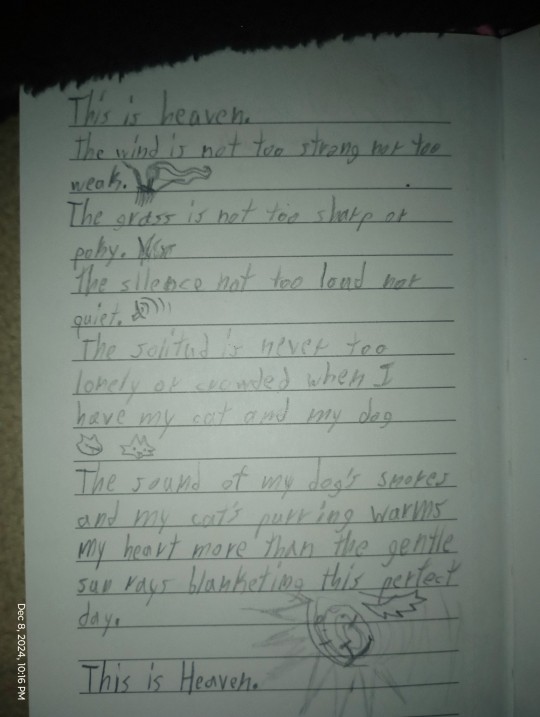 This is heaven.
The wind is not too strong nor too
weak.
The grass is not too sharp or
poky.
The silence not too loud nor
quiet.
The solitud is never too
lonely or crowded when I
have my cat and my dog
The sound of my dog's snores
and my cat's purring warms
my heart more than the gentle
sun rays blanketing this perfect
day.
This is Heaven.
Dec 8, 2024, 10:16 PM